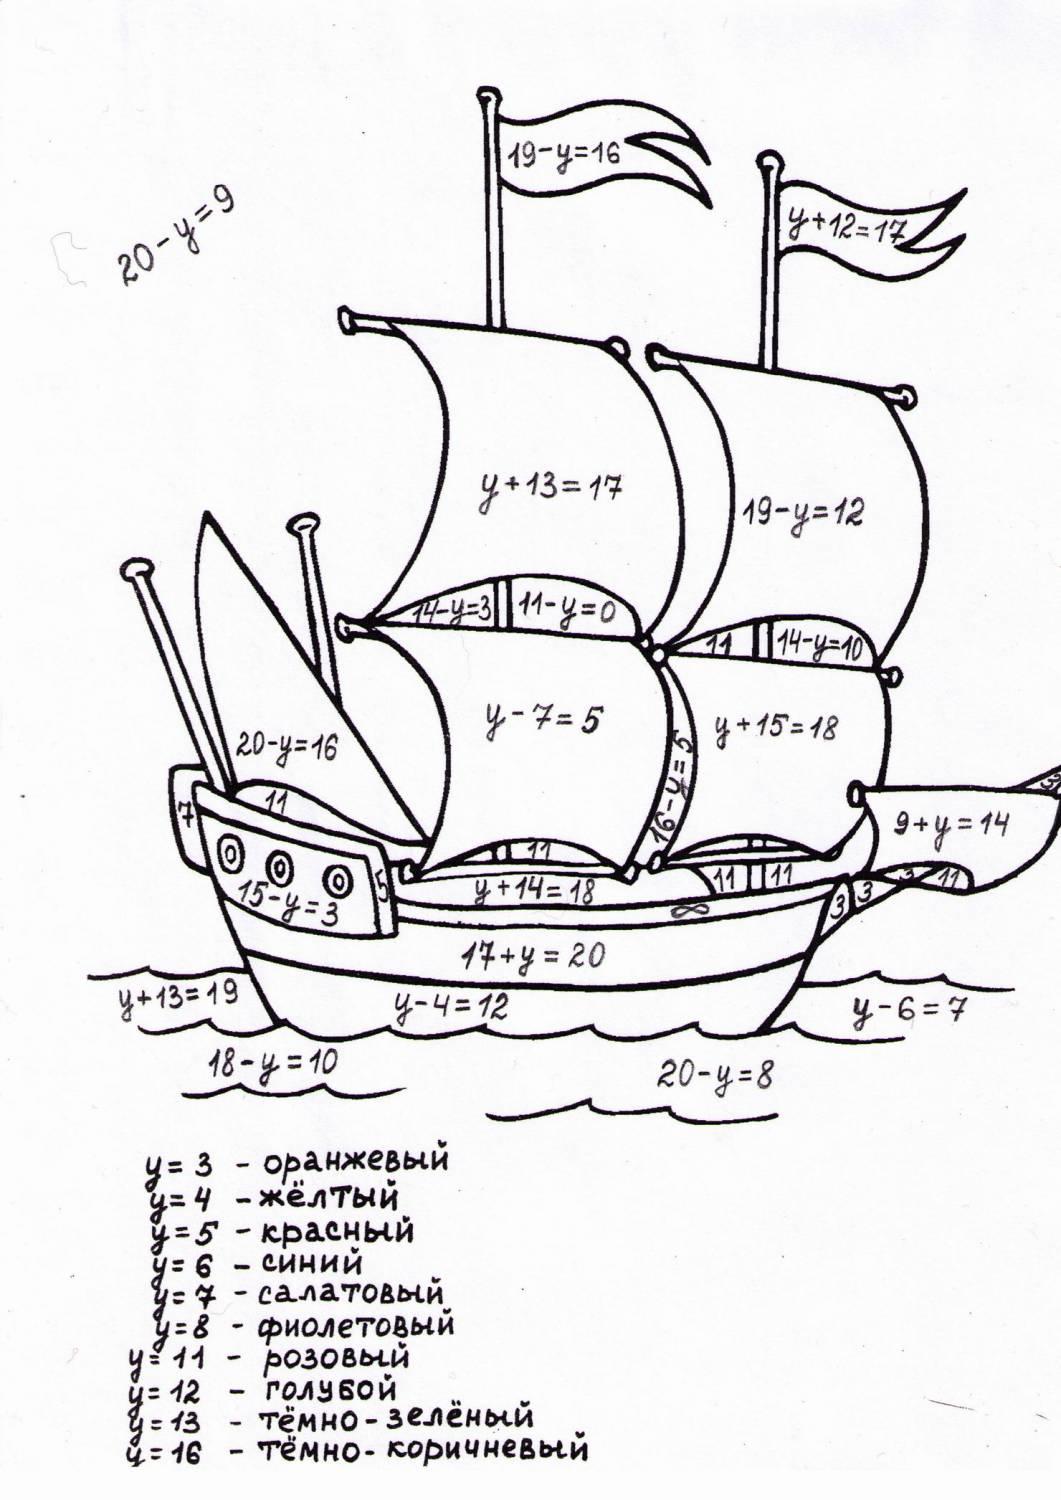 19-y=16
20-y=9
y+12=17
y+13=17
19-y=12
14-y=3
11-y=0
11
14-y=10
y-7=5
y+15=18
20-y=16
16-y=5
3
11
7
9+y=14
11
15-y=3
5
y+14=18
11
11
3
3
3
11
8
17+y=20
y+13=19
y-4=12
y-6=7
18-y=10
20-y=8
y=3 - оранжевый
y=4 - жёлтый
y=5 - красный
y=6 - синий
y=7 - салатовый
y=8 - фиолетовый
y=11 - розовый
y=12 - голубой
y=13 - тёмно-зелёный
y=16 - тёмно-коричневый